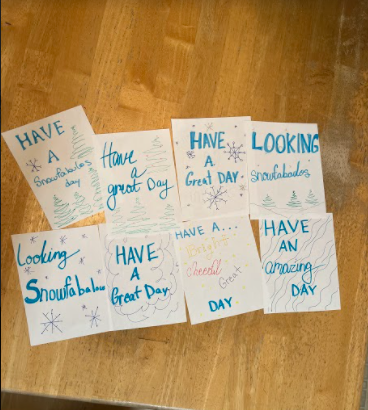 HAVE
A
Snowfabalos
day
Have
a
great Day
HAVE
A
Great DAY
LOOKING
Snowfabalos
Looking
HAVE
A
Great Day
HAVE A...
cheerful
Great
DAY
HAVE
AN
amazing
DAY